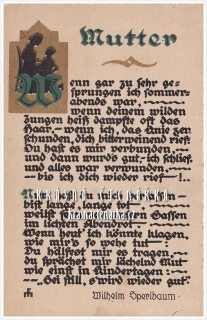 Mutter
Wenn gar zu sehr ge-
sprungen ich sommer-
abends war, ———
wenn deinem wilden
Jungen heiß dampfte oft das
Haar, – wenn ich, das Knie zer-
schunden, dich bitterweinend rief:
Du hast es mir verbunden —
und dann wurds gut,– ich schlief,
und alles war verwunden ——
— bis ich dich wieder rief — !..
bist du lange tot
weilst
Gassen
im lichten Abendrot.
Wenn heut' ich könnte klagen,
wie mir's so wehe tut
Du hülfest mir es tragen, —
du sprächest mir lächelnd Mut —
wie einst in Kindertagen: —
— „Sei still, s'wird wieder gut."
Wilhelm Sperlbaum